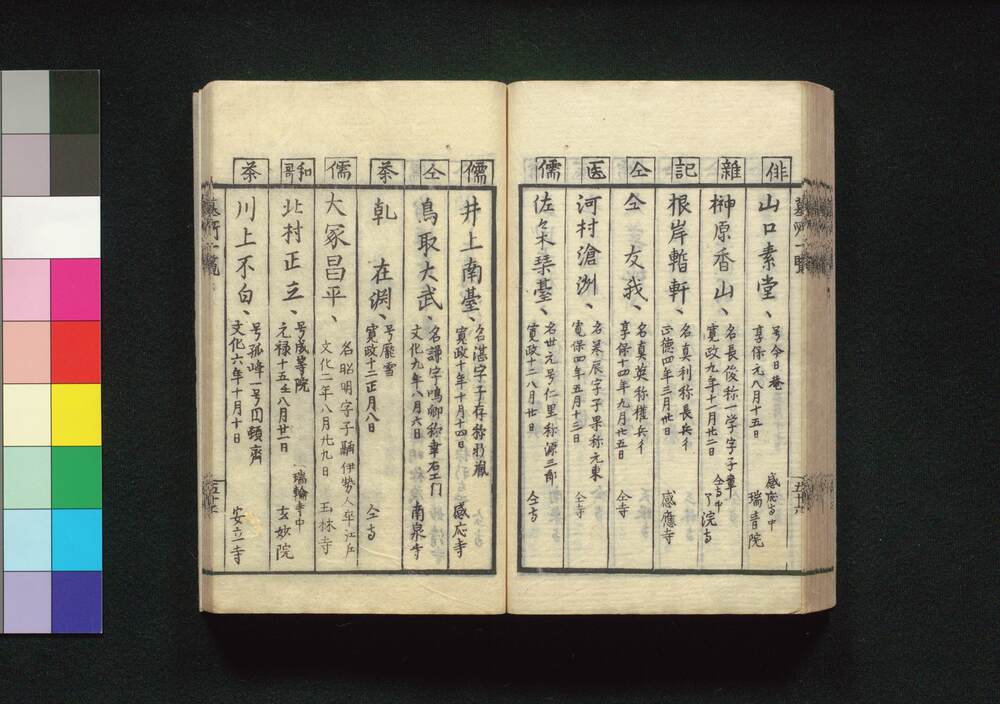 俳
山口素堂、
号今日菴
享保元八月十五日
感応寺中
瑞音院
雜
榊原香山、
名長俊称一学字子章
寛政九年十一月廿二日
仝寺中
了浣寺
記
根岸軒、
名真利称長兵衛
正徳四年三月廿日
感應寺
仝
仝友我、
名真英称権兵衛
享保十四年九月廿五日
仝寺
医
河村滄洲、
名辰字子果称元東
寛保四年五月十三日
仝寺
儒
佐々木琴臺、
名世元号仁里称源三郎
寛政十二八月廿日
仝寺
儒
井上南臺、
名湛字子存称
寛政十年十月十四日
感応寺
仝
鳥取大武、
名謙字鳴卿称韋石エ門
文化九年八月六日
南泉寺
茶
乾在渕、
号靡雪
寛政十二正月八日
仝寺
儒
大冢昌平、
名昭明字子伊勢人卒江戸
文化一年八月廿九日
玉林寺
和哥
北村正立、
号成等院
元禄十五壬八月廿一日
瑞輪寺中
玄妙院
茶
川上不白、
号孤峰一号円頓斎
文化六年十月十日
安立寺
墓所一覧
五十六
墓所一覧